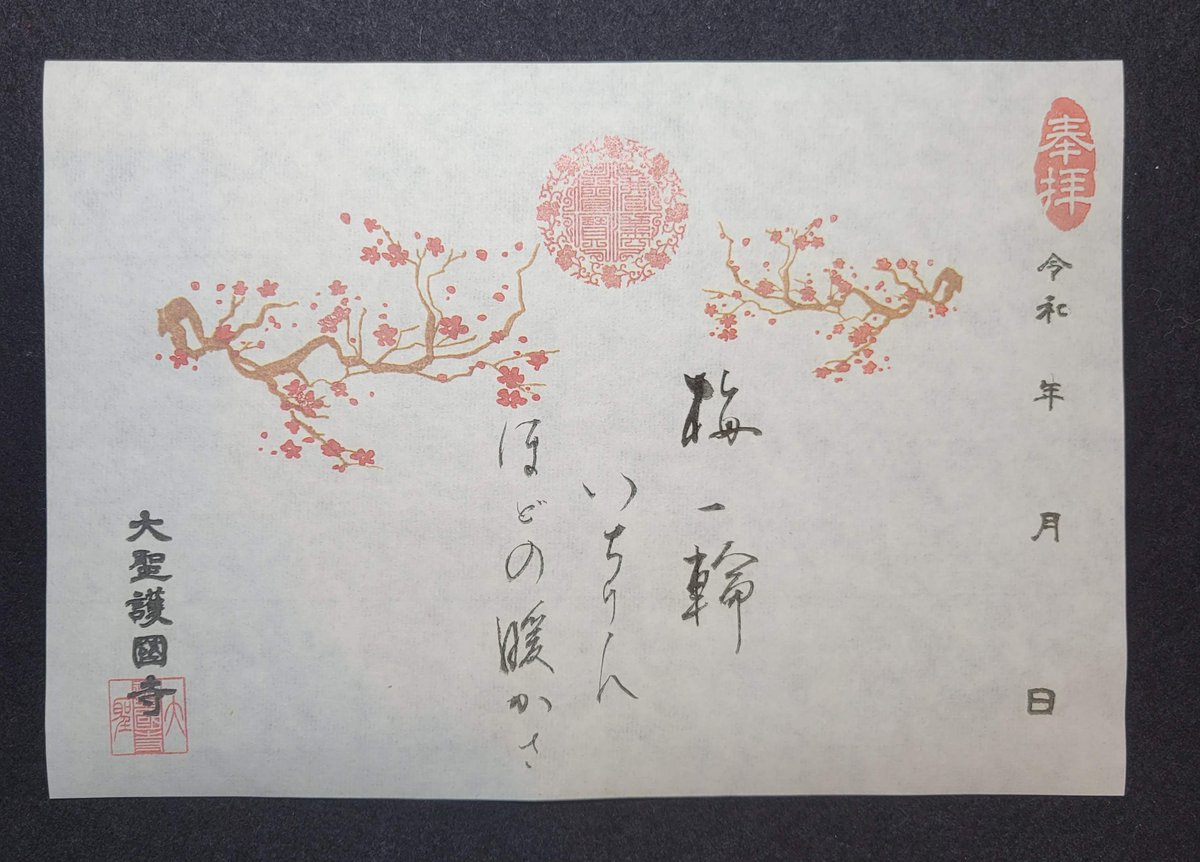 奉拝
令和 年 月 日
梅一輪
いちりん
ほどの暖かさ
大聖護國寺